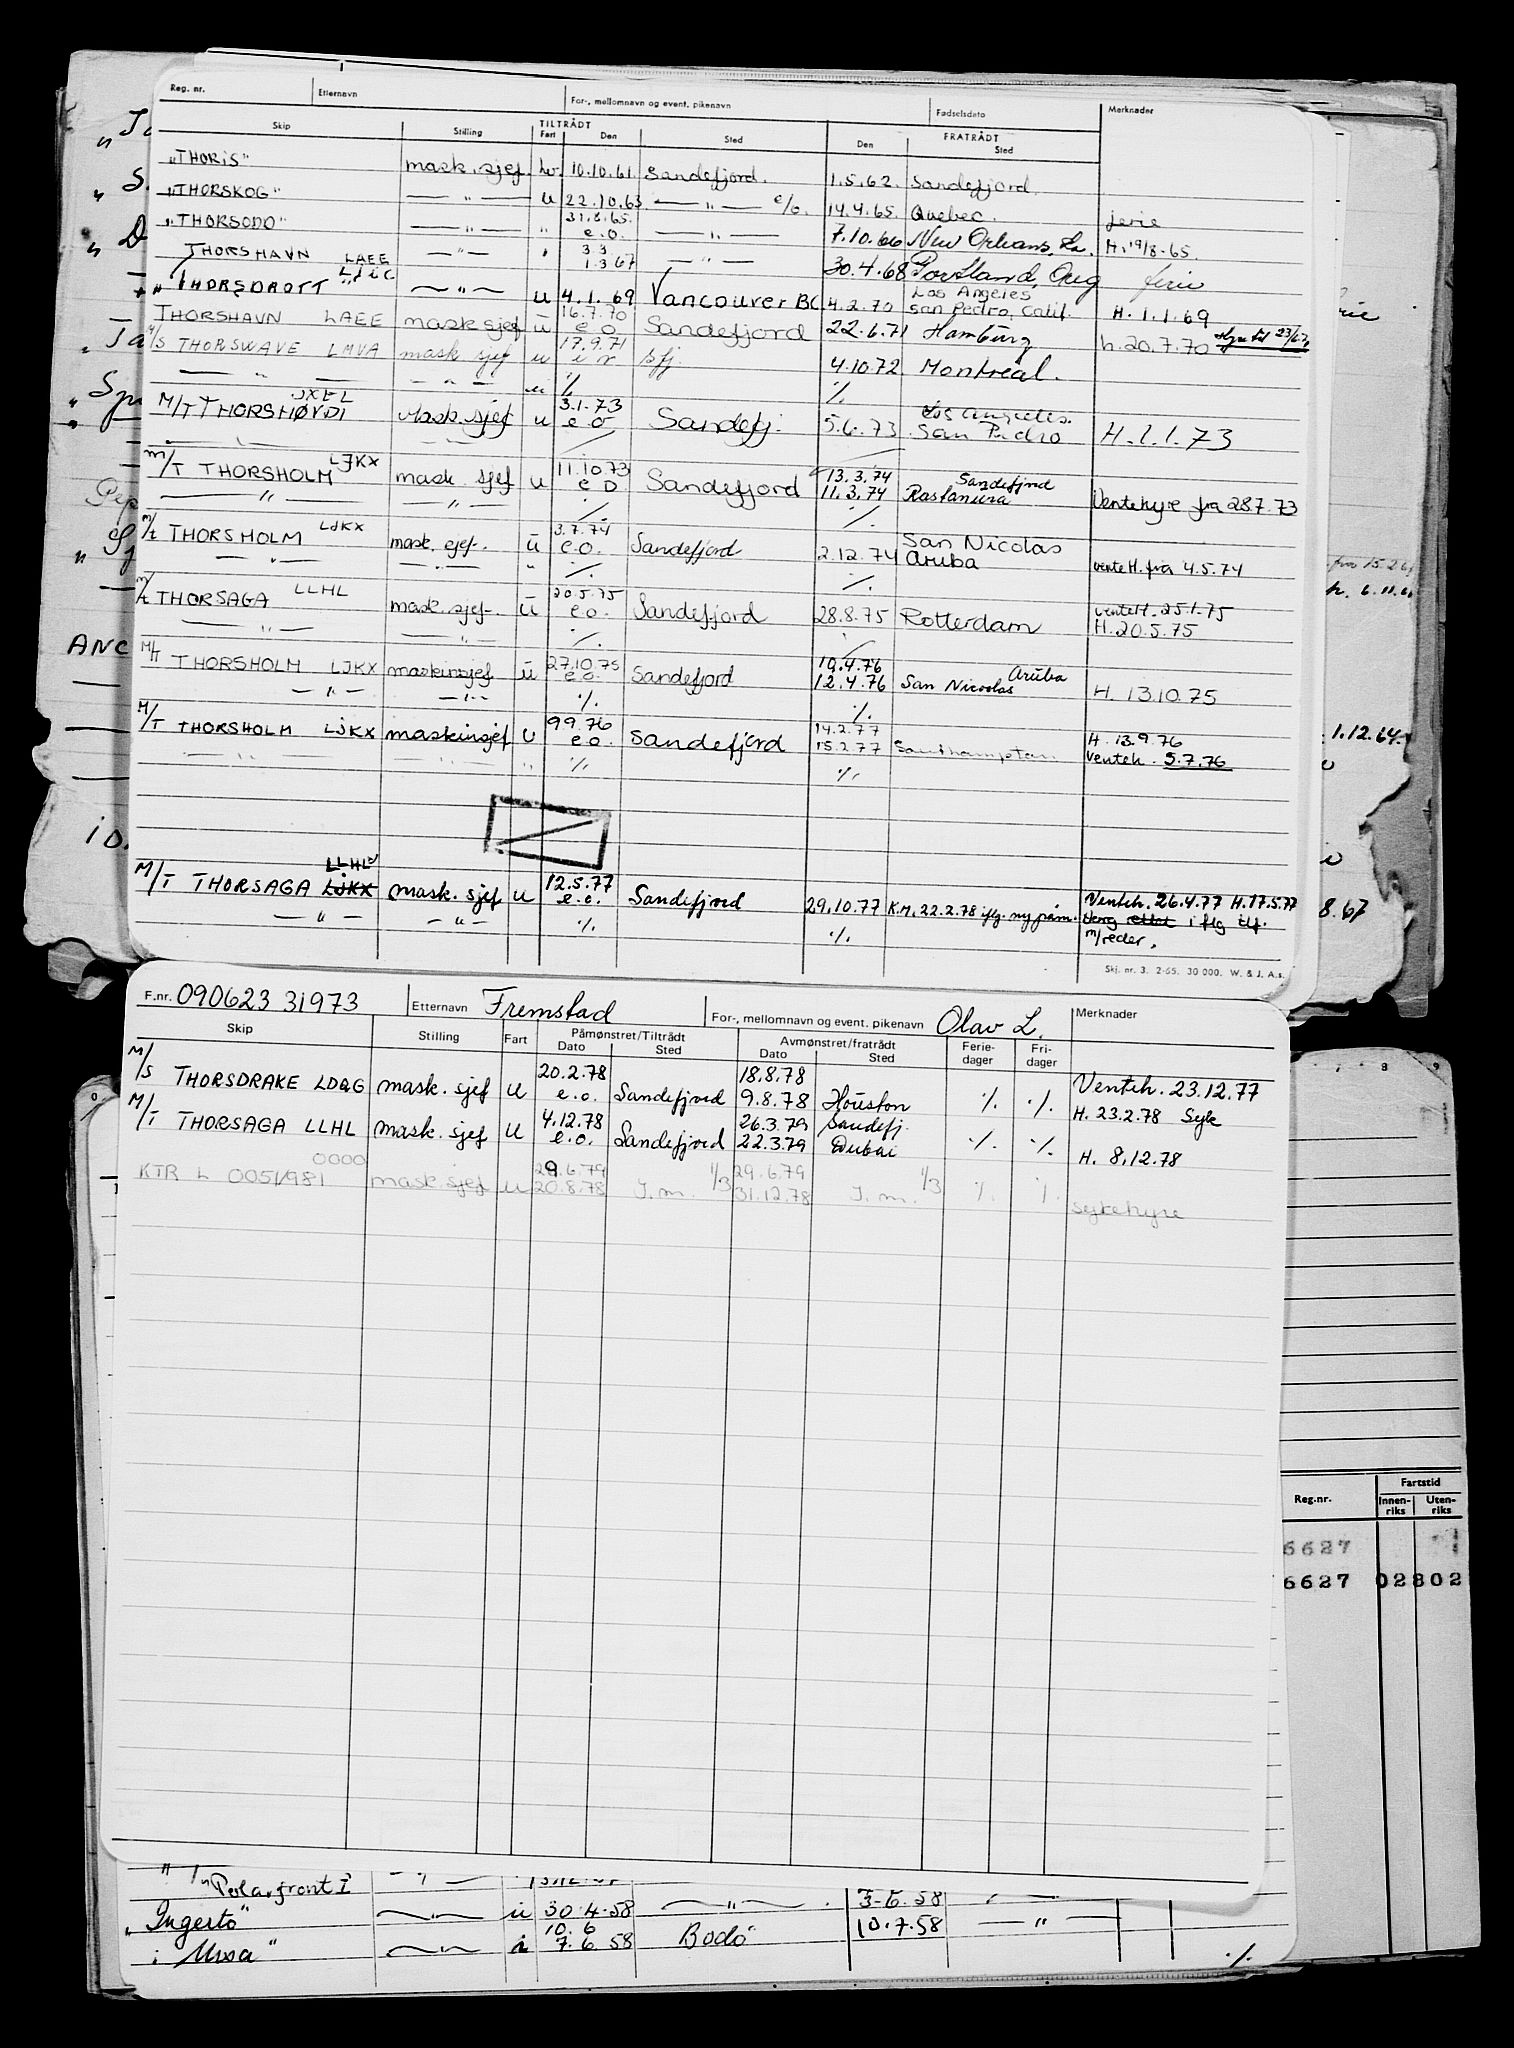 Reg. nr. Etternavn For-, mellomnavn og event. pikenavn Fødselsdato Merknader
Skip Stilling TILTRÅDT Fart Den Sted FRATRÅDT Den Sted
"THORIS" mask. sjef. 10.10.61. Sandefjord. 1.5.62. Sandefjord.
"THORSKOG" — " — u 22.10.63. — " — e/o. 14.4.65. Quebec. ferie
"THORSODD" — " — " 31.8.65. e.o. — " — 7.10.66 New Orleans, La. H. 19/8-65.
THORSHAVN LAEE — " — " 3.3 1.3.67 — " — 30.4.68 Portland, Oreg ferie
"THORSDROTT" — " — u 4.1.69 Vancouver BC 4.2.70 Los Angeles San Pedro, Calif. H. 1.1.69
THORSHAVN LAEE mask sjef u 16.7.70 e.o Sandefjord 22.6.71 Hamburg h. 20.7.70
M/S THORSWAVE LMVA mask sjef u 17.9.71 sfj. 4.10.72 Montreal.
— " — — " — ·/. ·/.
M/T THORSHØVDI JXEL Mask sjef u 3.1.73 e o Sandefj. 5.6.73 Los Angeles. San Pedro H. 1.1.73
M/T THORSHOLM LJKX mask. sjef u 11.10.73 e O Sandefjord 13.3.74 11.3.74 Sandefjord Rastanura Ventehyre fra 28.7.73
— " — — " — ·/. ·/.
M/T THORSHOLM LJKX mask. sjef. u 3.7.74 e.o. Sandefjord 2.12.74 San Nicolas Aruba vente H. fra 4.5.74
— " — — " — " ·/. ·/.
M/T THORSAGA LLHL mask. sjef. u 20.5.75 e.o. Sandefjord 28.8.75 Rotterdam venteH. 25.1.75 H. 20.5.75
— " — — " — ·/.
M/T THORSHOLM LJKX maskinsjef u 27.10.75 e.o. Sandefjord 10.4.76 12.4.76 San Nicolas Aruba H. 13.10.75
— " — — " — ·/. ·/.
M/T THORSHOLM LJKX maskinsjef u 9.9.76 e.o. Sandefjord 14.2.77 15.2.77 Southampton. H. 13.9.76 Venteh. 5.7.76
— " — " " ·/. ·/.
M/T THORSAGA LLHL LJKX mask. sjef u 12.5.77 e.o. Sandefjord 29.10.77 K.M. 22.2.78 iflg. ny påm. Venteh. 26.4.77 H. 17.5.77 i flg tlf. m/reder.
— " — — " — ·/. ·/.
Skj. nr. 3. 2-65. 30 000. W. & J. A.s.
F.nr. 090623 31973 Etternavn Fremstad For-, mellomnavn og event. pikenavn Olav L. Merknader
Skip Stilling Fart Påmønstret/Tiltrådt Dato Sted Avmønstret/fratrådt Dato Sted Ferie-dager Fri-dager
M/S THORSDRAKE LDQG mask. sjef u 20.2.78 e.o. Sandefjord 18.8.78 9.8.78 Houston ·/. ·/. Venteh. 23.12.77 H. 23.2.78 Syk
M/T THORSAGA LLHL mask. sjef u 4.12.78 e.o. Sandefjord 26.3.79 22.3.79 Sandefj. Dubai ·/. ·/. H. 8.12.78
KTR L 0051/981 0000 mask. sjef u 29.6.79 20.8.78 J.m. 1/3 29.6.79 31.12.78 J.m. 1/3 ·/. ·/. sykehyre
Reg.nr. Fartstid
Innen-riks Uten-riks
6627
6627 02802
Polarfront I
"Ingertö" — " — u 30.4.58 — " — 3-6.58
"Ursa" — " — i 10.6 7.6.58 Bodö 10.7.58 — " — ·/.
ANC
1.12.64.
8.67